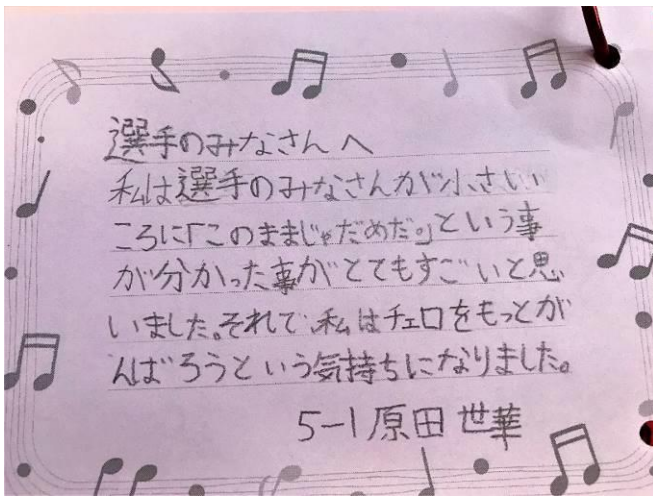 選手のみなさんへ
私は選手のみなさんが小さい
ころに「このままじゃだめだ。」という事
が分かった事がとてもすごいと思
いました。それで、私はチェロをもっとが
んばろうという気持ちになりました。
5-1 原田 世華